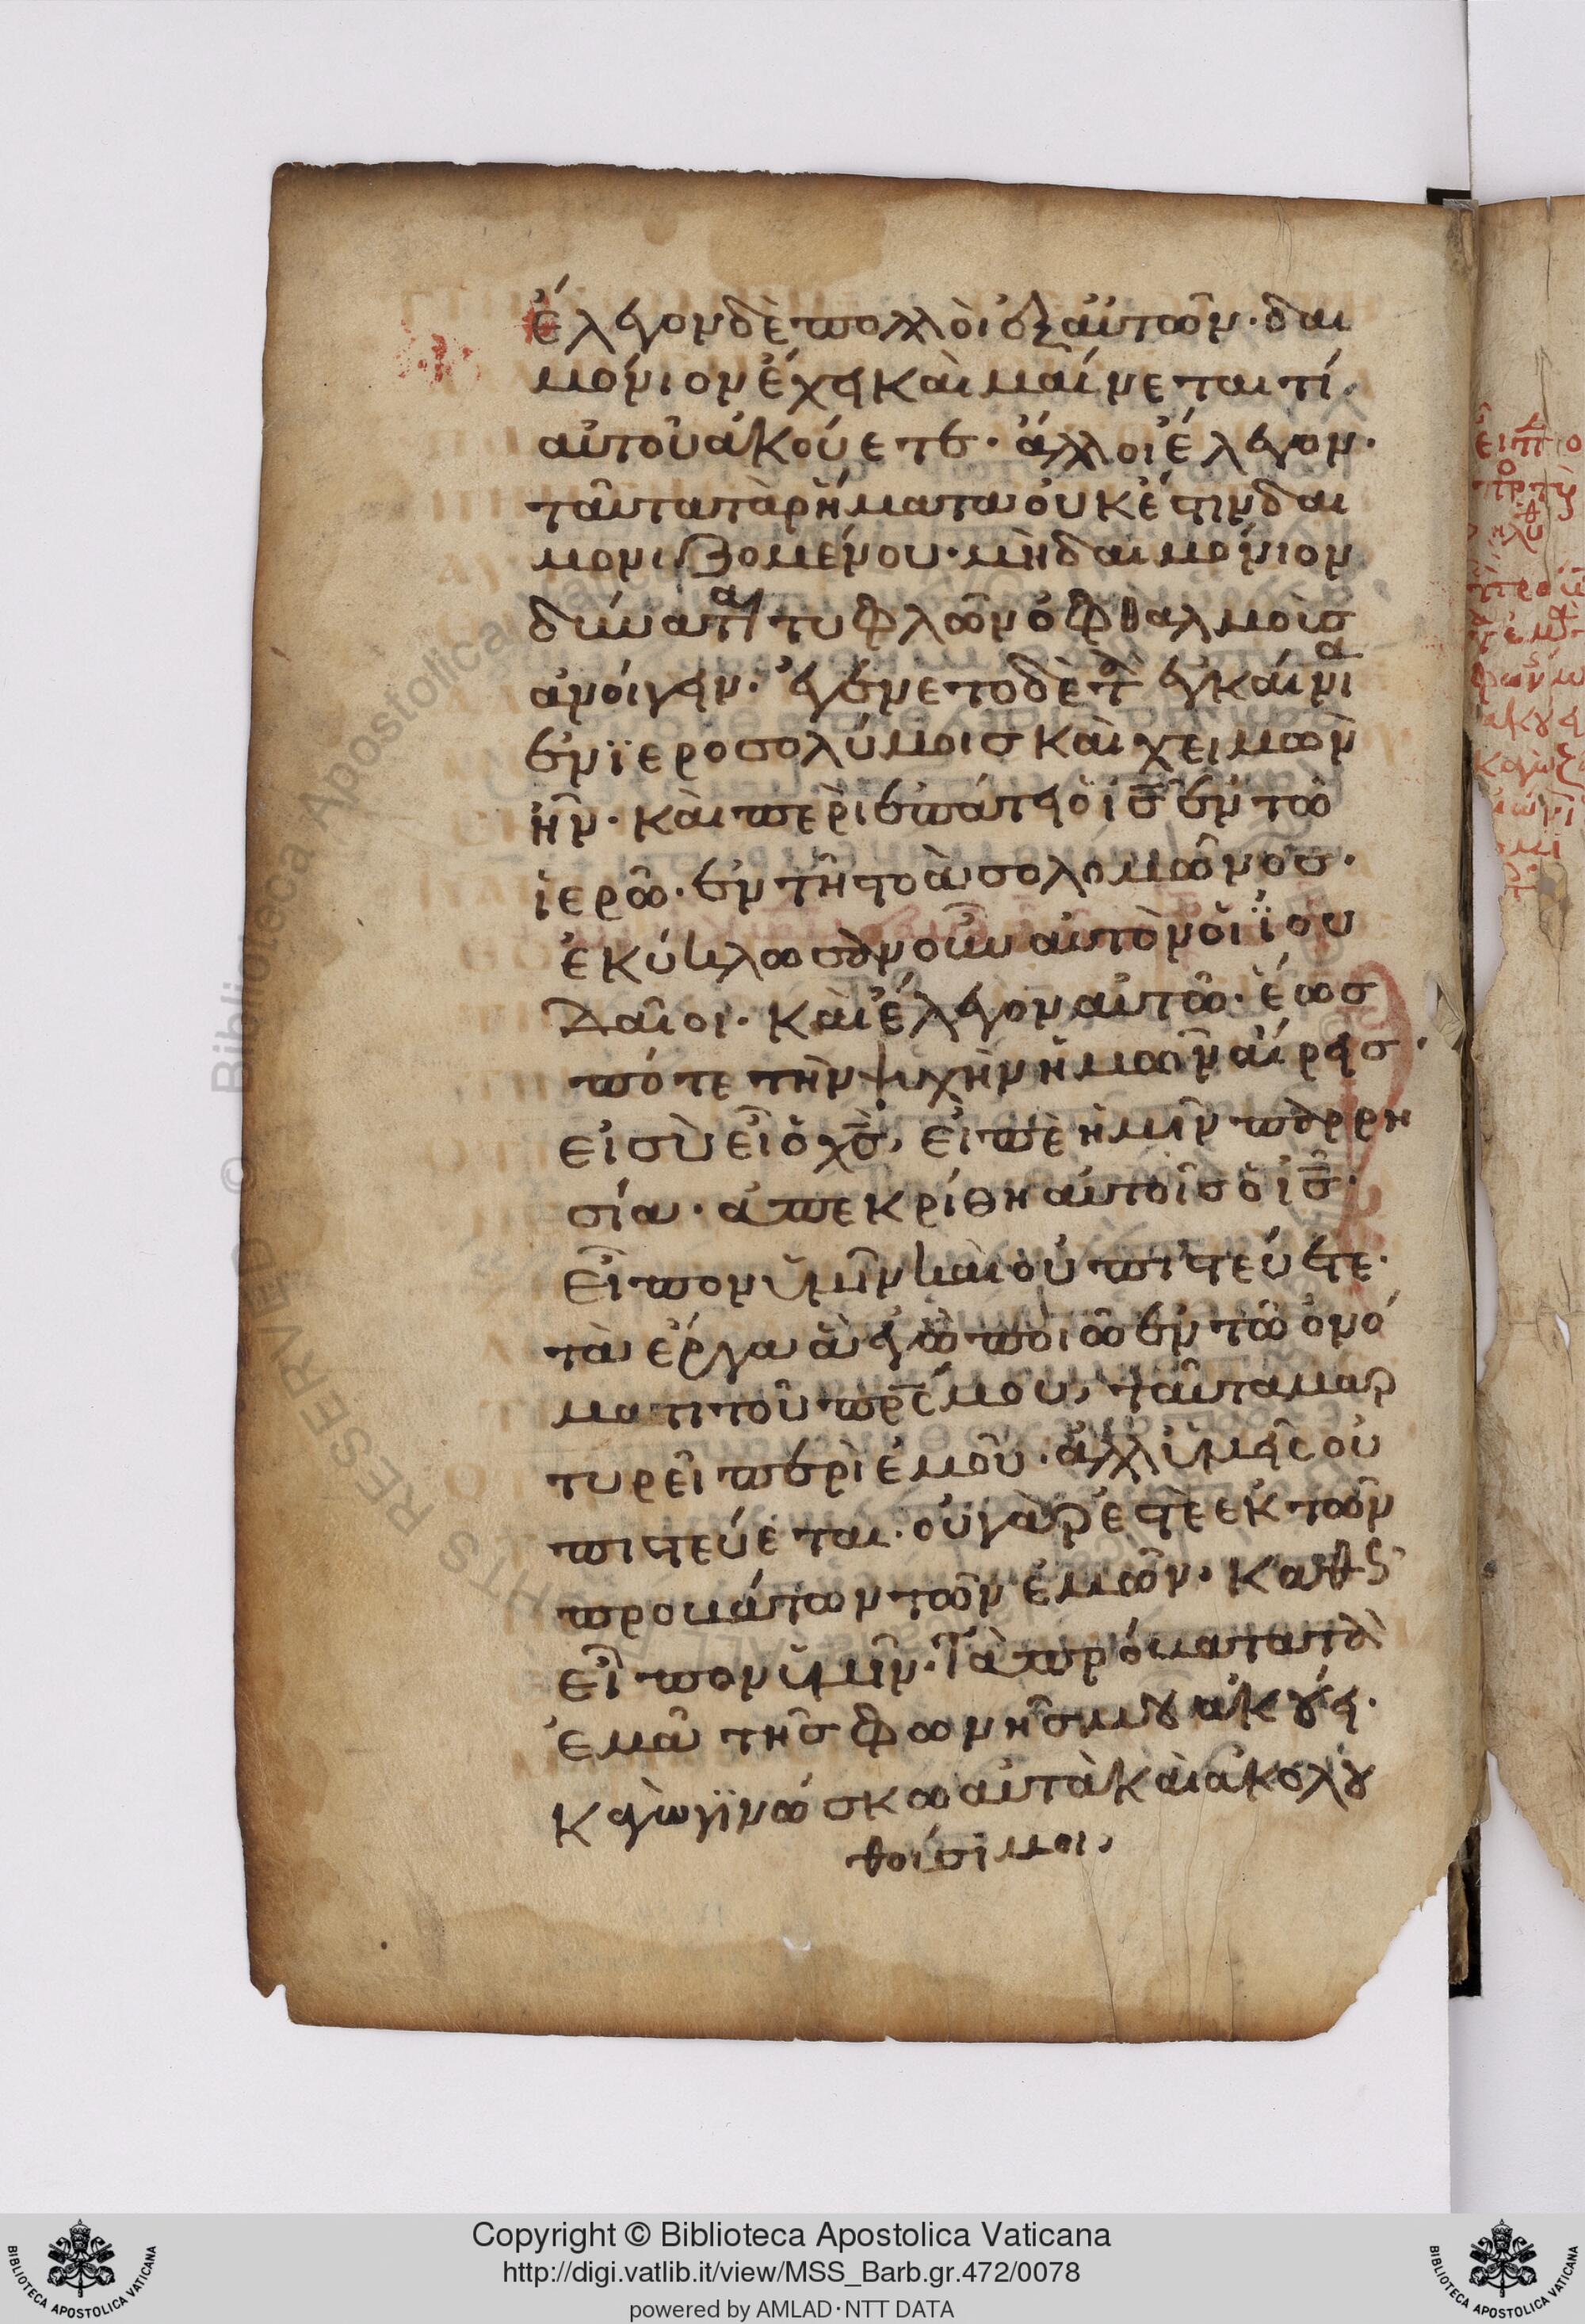 ἔλεγον δὲ πολλοὶ ἐξ αὐτῶν· δαι
μόνιον ἔχει καὶ μαίνεται τί
αὐτοῦ ἀκούετε· ἄλλοι ἔλεγον·
ταῦτα τὰ ῥήματα οὐκ ἔστιν δαι
μονιζομένου· μὴ δαιμόνιον
δύνατα τυφλῶν ὀφθαλμοὺς
ἀνοίγειν· ἐγένετο δὲ τ ἐγκαίνια
ἐν ἱεροσολύμοις καὶ χειμὼν
ἦν· καὶ περιεπάτει ὁ ις ἐν τῶ
ἱερῶ· ἐν τῆ στοὰ σολομῶνος·
ἐκύκλωσαν οὖν αὐτὸν οἱ ϊου
δαῖοι· καὶ ἔλεγον αὐτῶ· ἕως
πότε τὴν ψυχὴν ἡμῶν αἴρεις·
εἰ σὺ εἶ ὁ χς, εἰπὲ ἡμῖν παρρη
σία· ἀπεκρίθη αὐτοῖς ὁ ις·
εἶπον ὑμῖν καὶ οὐ πιστεύετε·
τὰ ἔργα ἃ ἐγὼ ποιῶ ἐν τῶ ὀνό
ματι τοῦ πρς μου, ταῦτα μαρ
τυρεῖ περὶ ἐμοῦ· ἀλλ ὑμεῖς οὐ
πιστεύεται· οὐ γὰρ ἐστὲ ἐκ τῶν
προβάτων τῶν ἐμῶν· καθς
εἶπον ὑμῖν· Τὰ πρόβατα τὰ
ἐμὰ τῆς φωνῆς μου ἀκούει·
κἀγὼ γϊνώσκω αὐτὰ καὶ ἀκολου
θοῦσί μοι,
Copyright © Biblioteca Apostolica Vaticana
http://digi.vatlib.it/view/MSS_Barb.gr.472/0078
powered by AMLAD·NTT DATA
BIBLIOTECA APOSTOLICA VATICANA
BIBLIOTECA APOSTOLICA VATICANA